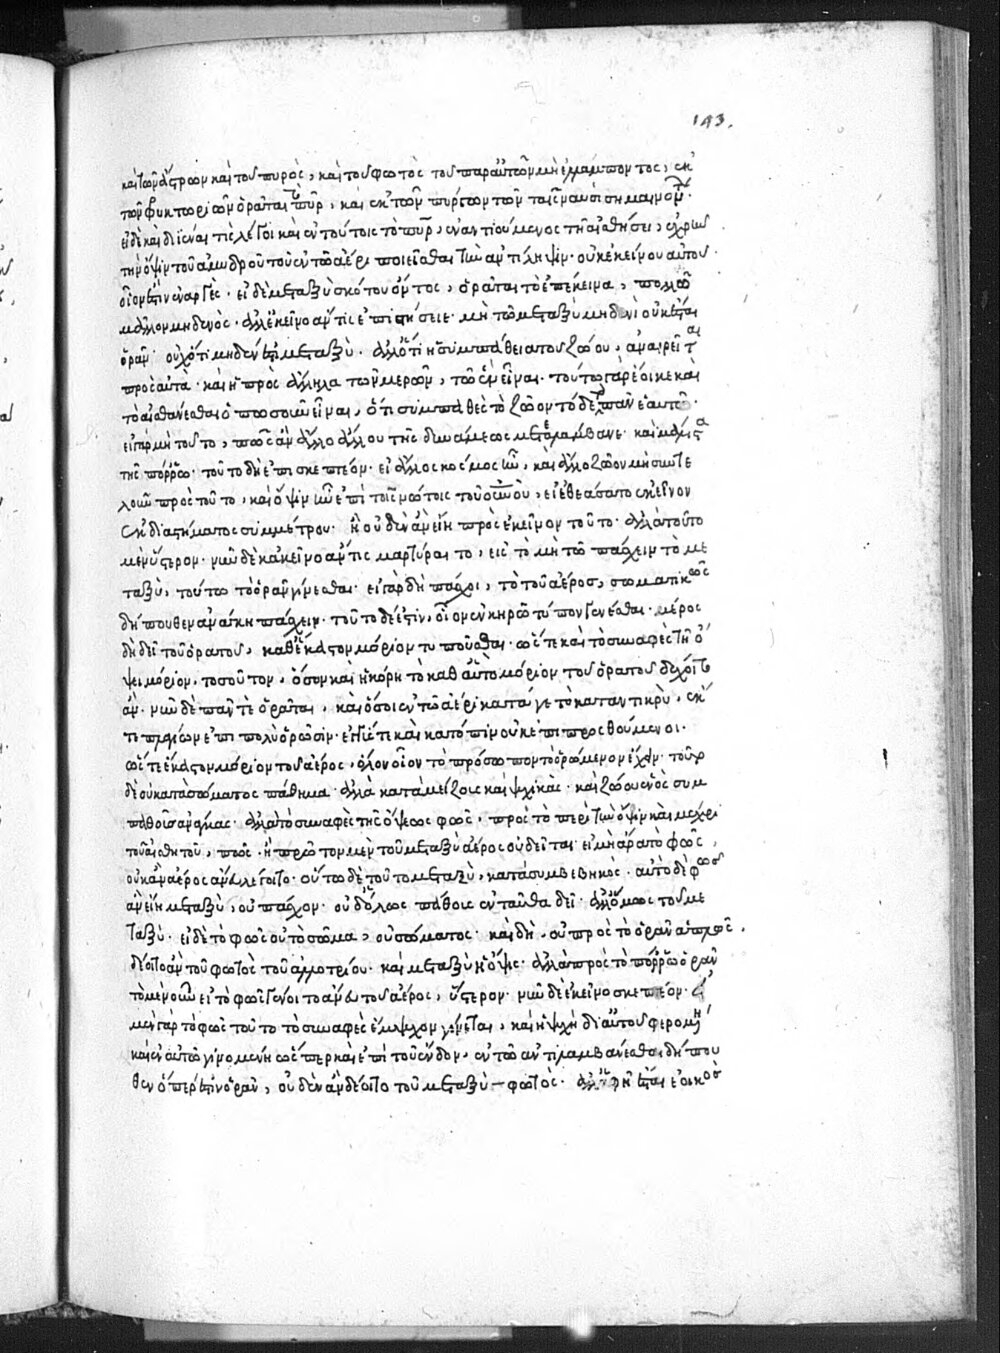 καὶ τῶν ἄστρων καὶ τοῦ πυρὸς, καὶ τοῦ φωτὸς τοῦ παραὐτῶν μὴ ἐλλάμποντος, ἐκ
τῶν φρυκτωριῶν ὁρᾶται τὸ πῦρ, καὶ ἐκ τῶν πύργων τῶν ταῖς ναυσὶ σημαινόντων·
εἰ δὲ καὶ διϊέναι τὶς λέγοι καὶ ἐν τούτοις τὸ πῦρ, ἐναντιούμενος τῇ αἰσθήσει,
τὴν ὄψιν τοῦ ἀμυδροῦ τοῦ ἐν τῶ ἀέρι ποιεῖσθαι τὴν ἀντίληψιν· οὐκ ἐκείνου αὐτοῦ
οἷον ἐστὶν ἐναργὲς· εἰ δὲ μεταξὺ σκότου ὄντος, ὁρᾶται τὸ ἐπέκεινα, πολλῶ
μᾶλλον μηδενός· ἀλλ' ἐκεῖνο ἄν τις ἐπιστήσειε· μὴ τῶ μεταξὺ μηδενὶ οὐκ ἔσται
ὁρᾶν· οὐχ ὅτι μηδὲν ἐστὶ μεταξύ· ἀλλ' ὅτι ἡ συμπάθεια τοῦ ζώου, ἀναιρεῖται
πρὸς αὐτὰ· καὶ ἡ πρὸς ἄλληλα τῶν μερῶν, τῶ ἓν εἶναι· τούτω γὰρ ἔοικε καὶ
τὸ αἰσθάνεσθαι ὁπωσοῦν εἶναι, ὅτι συμπαθὲς τὸ ζῶον τόδε τὸ πᾶν ἑαυτῶ·
εἰ γὰρ μὴ τοῦτο, πῶς ἂν ἄλλο ἄλλου τῆς δυνάμεως μετελάμβανε· καὶ μάλιστα
τῆς πόρρω· τοῦτο δὴ ἐπισκεπτέον· εἰ ἄλλος κόσμος ἦν, καὶ ἄλλο ζῶον μὴ συντε
λοῦν πρὸς τοῦτο, καὶ ὄψιν ἦν ἐπὶ τοῖς νώτοις τοῦ οὐνοῦ, εἰ ἐθεάσατο ἐκεῖνον
ἐκ διαστήματος συμμέτρου· ἢ οὐδὲν ἂν εἴη πρὸς ἐκεῖνον τοῦτο· ἀλλὰ τοῦτο
μὲν ὕστερον· νῦν δὲ κἀκεῖνο ἄν τις μαρτύραιτο, εἰς τὸ μὴ τῶ πάσχειν τὸ με
ταξὺ, τούτω τὸ ὁρᾶν γίνεσθαι· εἰ γὰρ δὴ πάσχοι, τὸ τοῦ ἀέρος, σωματικῶς
δήπουθεν ἀνάγκη πάσχειν· τοῦτο δέ ἐστιν, οἷον ἐν κηρῶ τύπον γενέσθαι· μέρος
δὴ δεῖ τοῦ ὁρατοῦ, καθ' ἕκαστον μόριον τυποῦσθαι· ὥστε καὶ τὸ συναφὲς τῆ ὄ
ψει μόριον, τοσοῦτον, ὅσον καὶ ἡ κόρη τὸ καθ' αὑτὸ μόριον τοῦ ὁρατοῦ δέχοιτο
ἄν· νῦν δὲ πᾶν τε ὁρᾶται, καὶ ὅσοι ἐν τῶ ἀέρι κατά γε τὸ καταντικρὺ, ἔκ
τε πλαγίων ἐπὶ πολὺ ὁρῶσιν· ἐγγύς τε καὶ κατόπιν οὐκ ἐπιπροσθούμενοι·
ὥστε ἕκαστον μόριον τοῦ ἀέρος, ὅλον οἷον τὸ πρόσωπον τὸ ὁρώμενον ἔχειν· τοῦτο
δὲ οὐ κατὰ σώματος πάθημα· ἀλλὰ κατὰ μείζους καὶ ψυχικὰς· καὶ ζώου ἑνὸς συμ
παθοῦς ἀνάγκας· ἀλλὰ τὸ συναφὲς τῆς ὄψεως φῶς, πρὸς τὸ περὶ τὴν ὄψιν καὶ μέχρι
τοῦ αἰσθητοῦ, πῶς· ἢ πρῶτον μὲν τοῦ μεταξὺ ἀέρος οὐ δεῖται· εἰ μὴ ἄρα τὸ φῶς,
οὐκ ἂν ἀέρος ἄνευ λέγοιτο· οὕτω δὲ τοῦτο μεταξὺ, κατὰ συμβεβηκός· αὐτὸ δὲ φῶς
ἂν εἴη μεταξὺ, οὐ πάσχον· οὐδ' ὅλως πάθους ἐνταῦθα δεῖ· ἀλλ' ὅμως τοῦ με
ταξὺ· εἰ δὲ τὸ φῶς οὐ τὸ σῶμα, οὐ σώματος· καὶ δὴ, οὐ πρὸς τὸ ὁρᾶν ἁπλῶς,
δέοιτο ἂν τοῦ φωτὸς τοῦ ἀλλοτρίου· καὶ μεταξὺ ἡ ὄψις· ἀλλὰ πρὸς τὸ πόρρω ὁρᾶν
τὸ μὲν οὖν εἰ τὸ φῶς γένοιτο ἄνευ τοῦ ἀέρος, ὕστερον· νῦν δὲ ἐκεῖνο σκεπτέον· εἰ
μὲν γὰρ τὸ φῶς τοῦτο τὸ συναφὲς ἔμψυχον γίνεται, καὶ ἡ ψυχὴ δι' αὐτοῦ φερομένη
καὶ ἐν αὐτῶ γινομένη ὥσπερ καὶ ἐπὶ τοῦ ἔνδον, ἐν τῶ ἀντιλαμβάνεσθαι δήπου
θεν ὅπερ ἐστὶν ὁρᾶν, οὐδὲν ἂν δέοιτο τοῦ μεταξὺ — φωτὸς· ἀλλ' ἁφῆ ἔσται ἐοικὸς
143.